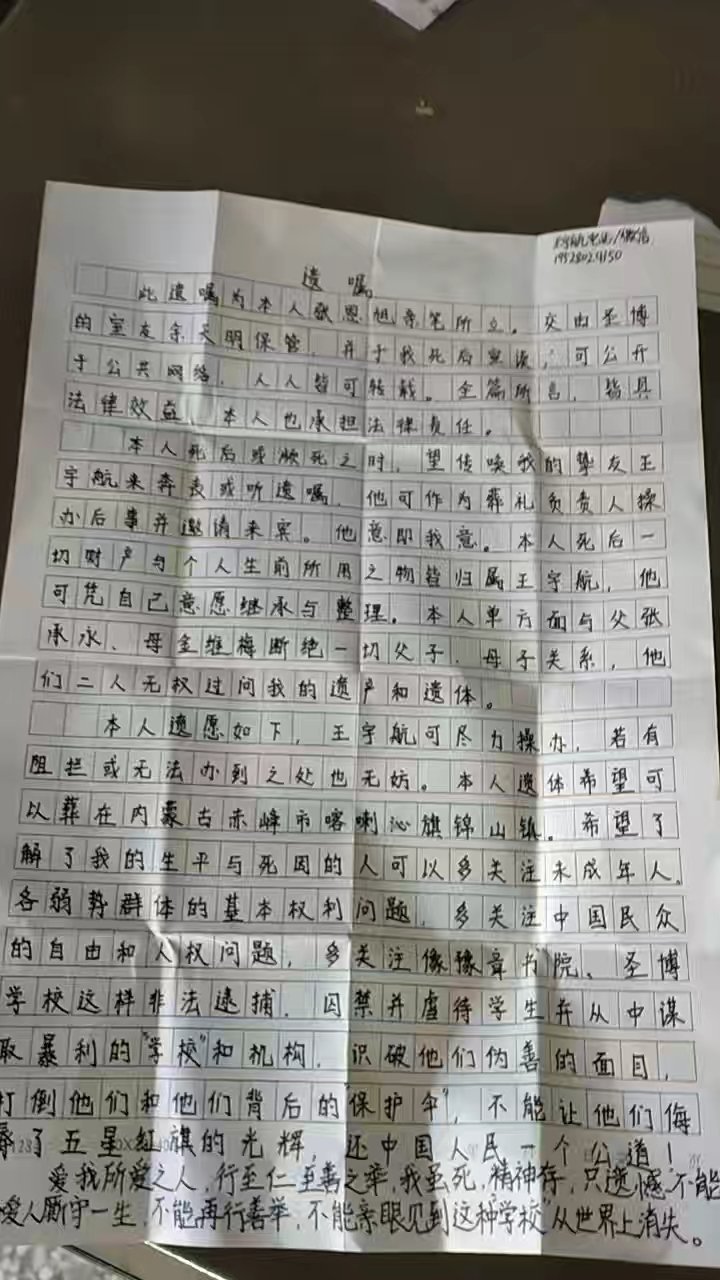 宇航电话/微信
19528029150
遗嘱
此遗嘱为本人张恩旭亲笔所立。交由圣博
的室友余天明保管,并于我死后宣读,可公开
于公共网络,人人皆可转载。全篇所言,皆具
法律效益,本人也承担法律责任。
本人死后或濒死之时,望传唤我的挚友王
宇航来奔丧或听遗嘱,他可作为葬礼负责人操
办后事并邀请来宾。他意即我意。本人死后一
切财产与个人生前所用之物皆归属王宇航,他
可凭自己意愿继承与整理。本人单方面与父张
承永、母金维梅断绝一切父子、母子关系,他
们二人无权过问我的遗产和遗体。
本人遗愿如下,王宇航可尽力操办,若有
阻拦或无法办到之处也无妨。本人遗体希望可
以葬在内蒙古赤峰市喀喇沁旗锦山镇。希望了
解了我的生平与死因的人可以多关注未成年人、
各弱势群体的基本权利问题,多关注中国民众
的自由和人权问题,多关注像豫章书院、圣博
学校这样非法逮捕、囚禁并虐待学生并从中谋
取暴利的“学校”和机构,识破他们伪善的面目,
打倒他们和他们背后的“保护伞”,不能让他们侮
辱了五星红旗的光辉,还中国人民一个公道!
爱我所爱之人,行至仁至善之举,我虽死,精神存,只遗憾不能
爱人厮守一生,不能再行善举,不能亲眼见到这种“学校”从世界上消失。